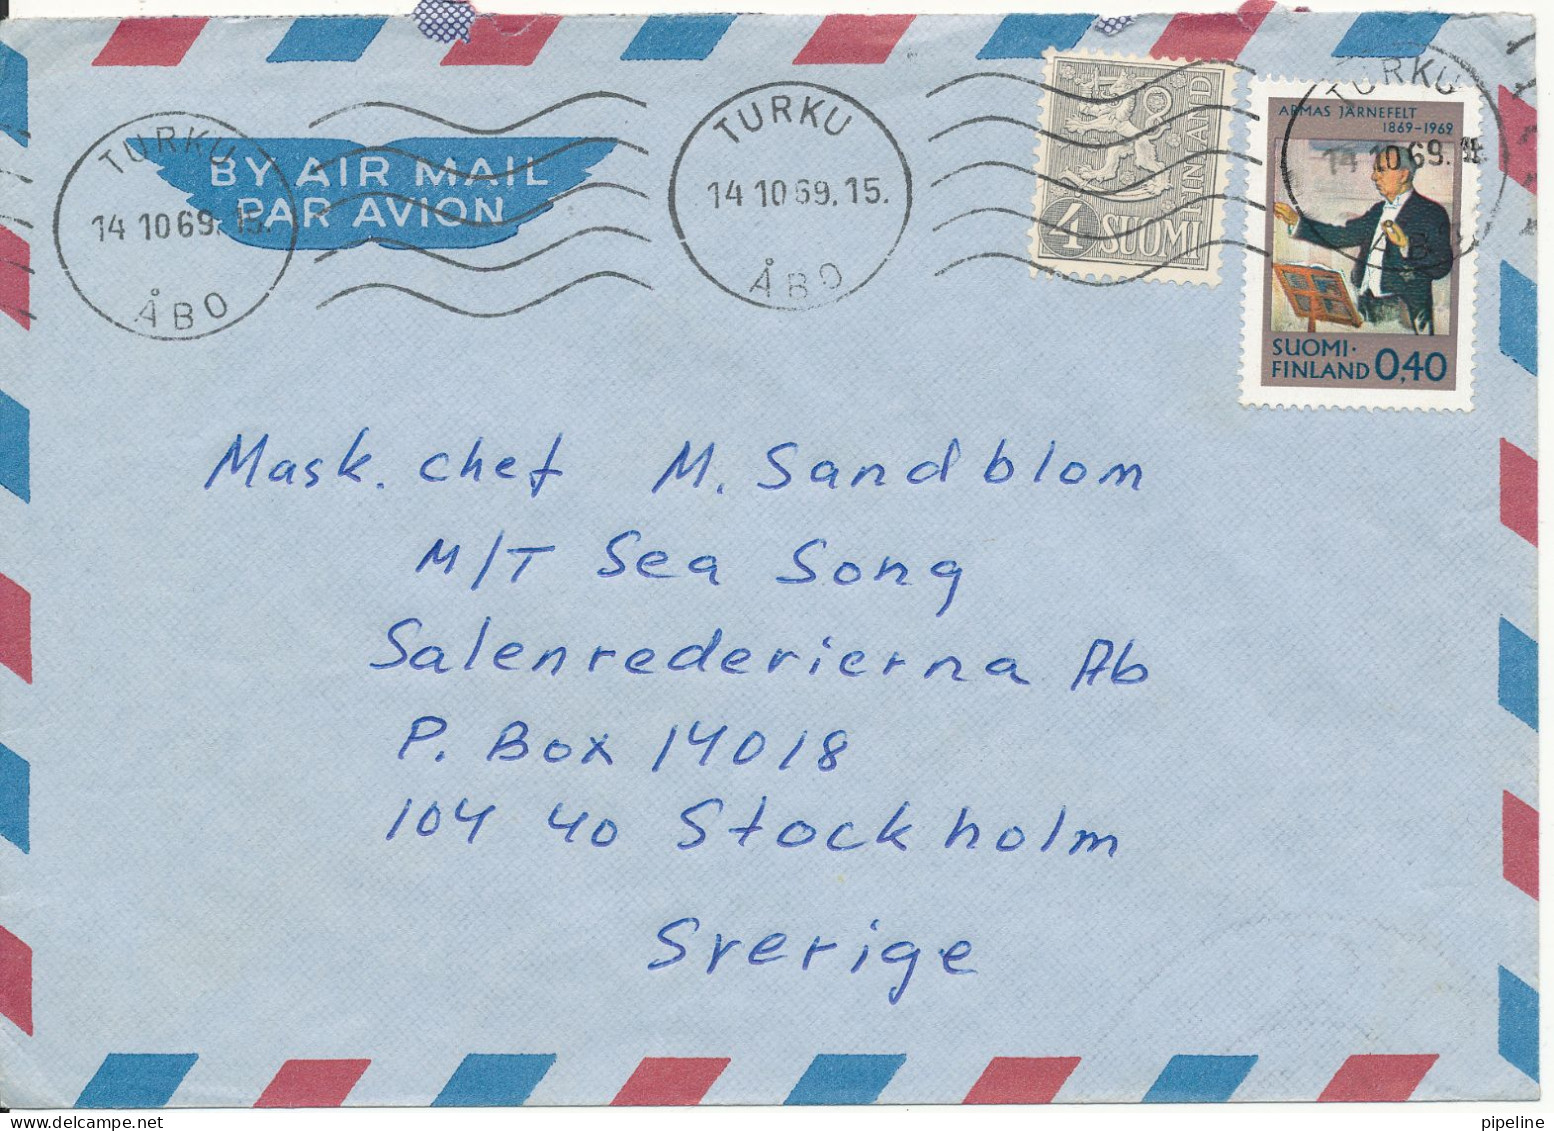 TURKU
14 10 69.15.
ÅBO
BY AIR MAIL
PAR AVION
TURKU
14 10 69.15.
ÅBO
4 SUOMI
FINLAND
TURKU
14 10 69.
ÅBO
ARMAS JÄRNEFELT
1869-1969
SUOMI·
FINLAND 0,40
Mask. chef M. Sandblom
M/T Sea Song
Salenrederierna Ab
P. Box 14018
104 40 Stockholm
Sverige
pipeline